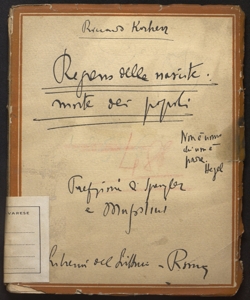 Riccardo Korherr
Regresso delle nascite:
morte dei popoli
Non è uomo
chi non è
padre.
Hegel
Prefazioni di Spengler
e Mussolini
VARESE
Libreria del Littorio - Roma